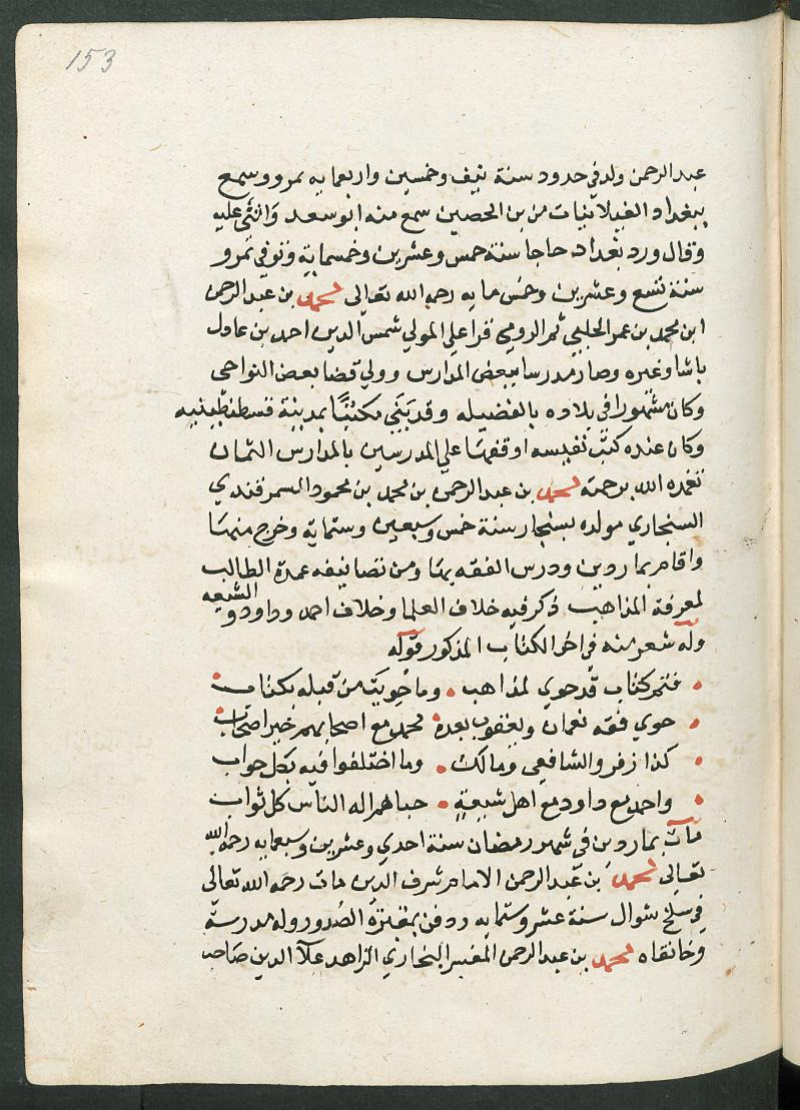 153
عبد الرحمن ولد في حدود سنة نيف وخمسين واربعمايه بمرو وسمع
ببغداد الغيلانيات من بن الحصين سمع منه ابو سعد واثنى عليه
وقال ورد بغداد حاجا سنة خمس وعشرين وخمسماية وتوفي بمرو
سنة تسع وعشرين وخمس مايه رحمه الله تعالى محمد بن عبد الرحمن
ابن محمد بن عمر الحلبي ثم الرومي قرا علي المولي شمس الدين احمد بن عادل
باشا وغيره وصار مدرسا ببعض المدارس وولي قضا بعض النواحي
وكان مشهورا في بلاده بالفضيله وقد بَنَي مكتبًا بمدينة قسطنطينيه
وكان عنده كتب نفيسه اوقفها علي المدرسين بالمدارس الثمان
تغمده الله برحمته محمد بن عبد الرحمن بن محمد بن محمود السمرقندي
السنجاري مولده بسنجار سنة خمس وسبعين وستماية وخرج منها
واقام بماردين ودرس الفقه بها ومن تصانيفه عمدة الطالب
لمعرفة المذاهب ذكر فيه خلاف العلما وخلاف احمد وداود والشيعه
وله شعر منه في اخر الكتاب المذكور قوله
فتم كتاب قد حوي لمذاهب وما حويت من قبله بكتاب
حوي فقه نعمان ويعقوب بعده محمد مع اصحابهم خير اصحاب
كذا زفر والشافعي ومالك وما اختلفوا فيه بكل جواب
واحمد مع داود مع اهل شيعة حباهم اله الناس كل ثواب
مات بماردين في شهر رمضان سنة احدي وعشرين وسبعمايه رحمه الله
تعالى محمد بن عبد الرحمن الامام شرف الدين مات رحمه الله تعالى
في سلخ شوال سنة عشر وستمايه ودفن بمقبرة الصدور وله مدرسة
وخانقاه محمد بن عبد الرحمن المفسر البخاري الزاهد علآ الدين صاحب